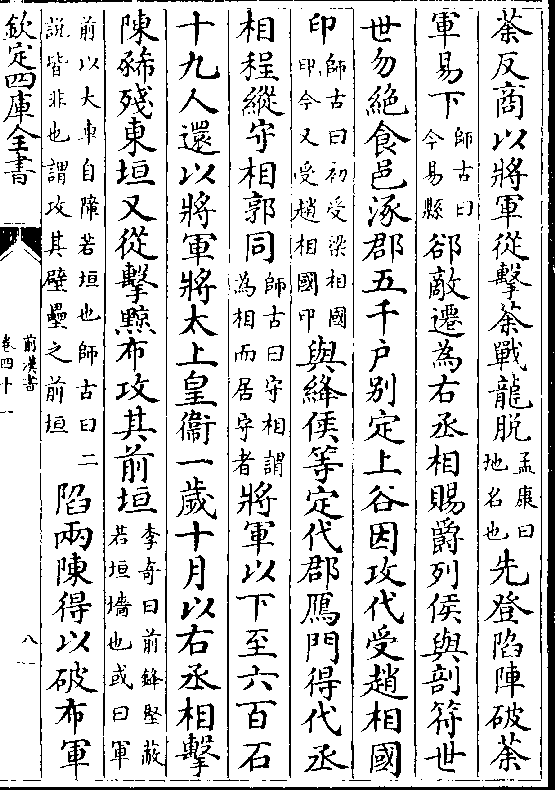 荼反商以將軍從擊荼戰龍脫孟康曰地名也先登陷陣破荼
軍易下師古曰今易縣郤敵遷為右丞相賜爵列侯與剖符世
世勿絶食邑涿郡五千户别定上谷因攻代受趙相國
印師古曰初受梁相國印今又受趙相國印與絳侯等定代郡鴈門得代丞
相程縱守相郭同師古曰守相謂為相而居守者將軍以下至六百石
十九人還以將軍將太上皇衞一歲十月以右丞相擊
陳豨殘東垣又從擊黥布攻其前垣李奇曰前鋒堅蔽若垣墻也或曰軍
前以大車自障若垣也師古曰二說皆非也謂攻其壁壘之前垣陷兩陳得以破布軍
欽定四庫全書
前漢書
卷四十一
八